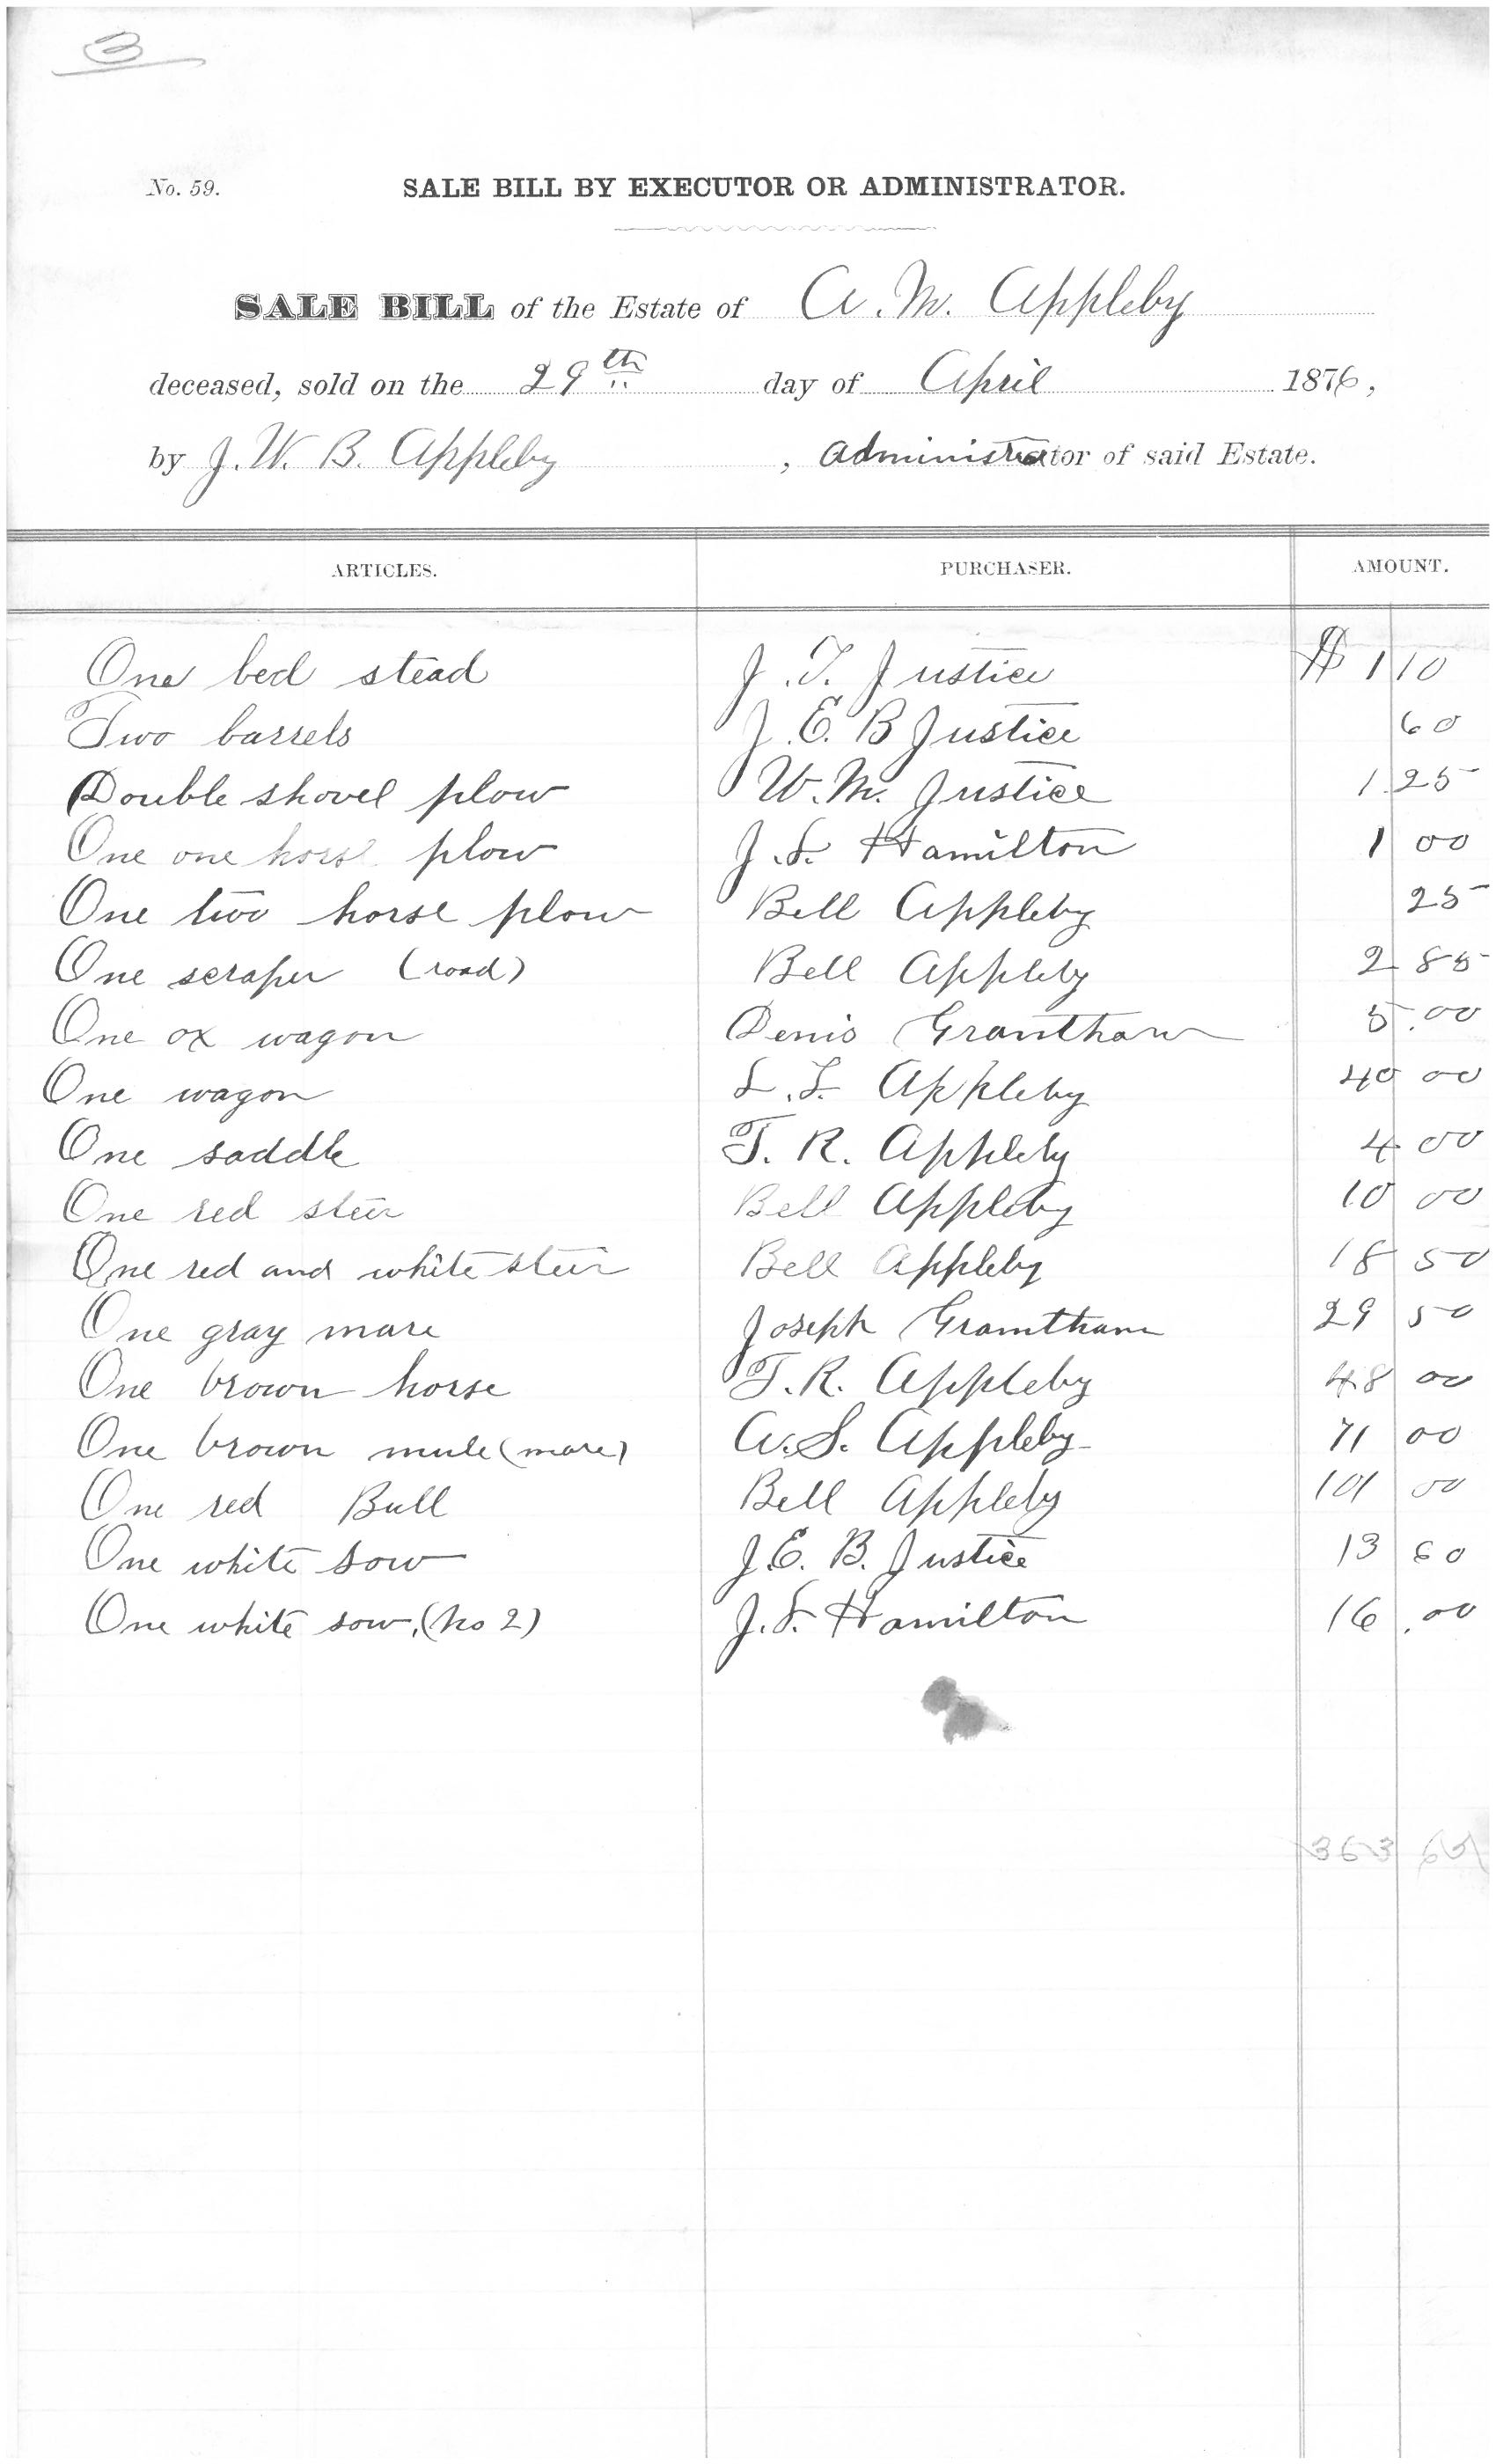 3
No. 59.
SALE BILL BY EXECUTOR OR ADMINISTRATOR.
SALE BILL of the Estate of A. M. Appleby
deceased, sold on the 29th day of April 1876,
by J. W. B. Appleby, Administrator of said Estate.
ARTICLES. PURCHASER. AMOUNT.
One bed stead J. T. Justice $ 1 10
Two barrels J. E. B Justice 60
Double shovel plow W. M. Justice 1 25
One one horse plow J. S. Hamilton 1 00
One two horse plow Bell Appleby 25
One scraper (road) Bell Appleby 2 85
One ox wagon Denis Grantham 5.00
One wagon Appleby 40 00
One saddle T. R. Appleby 4 00
One red steer Bell Appleby 10 00
One red and white steer Bell Appleby 18 50
One gray mare Joseph Gramtham 29 50
One brown horse T. R. Appleby 48 00
One brown mule (mare) A. S. Appleby 71 00
One red Bull Bell Appleby 101 00
One white sow J. E. B. Justice 13 60
One white sow, (No 2) J. S. Hamilton 16.00
363 65